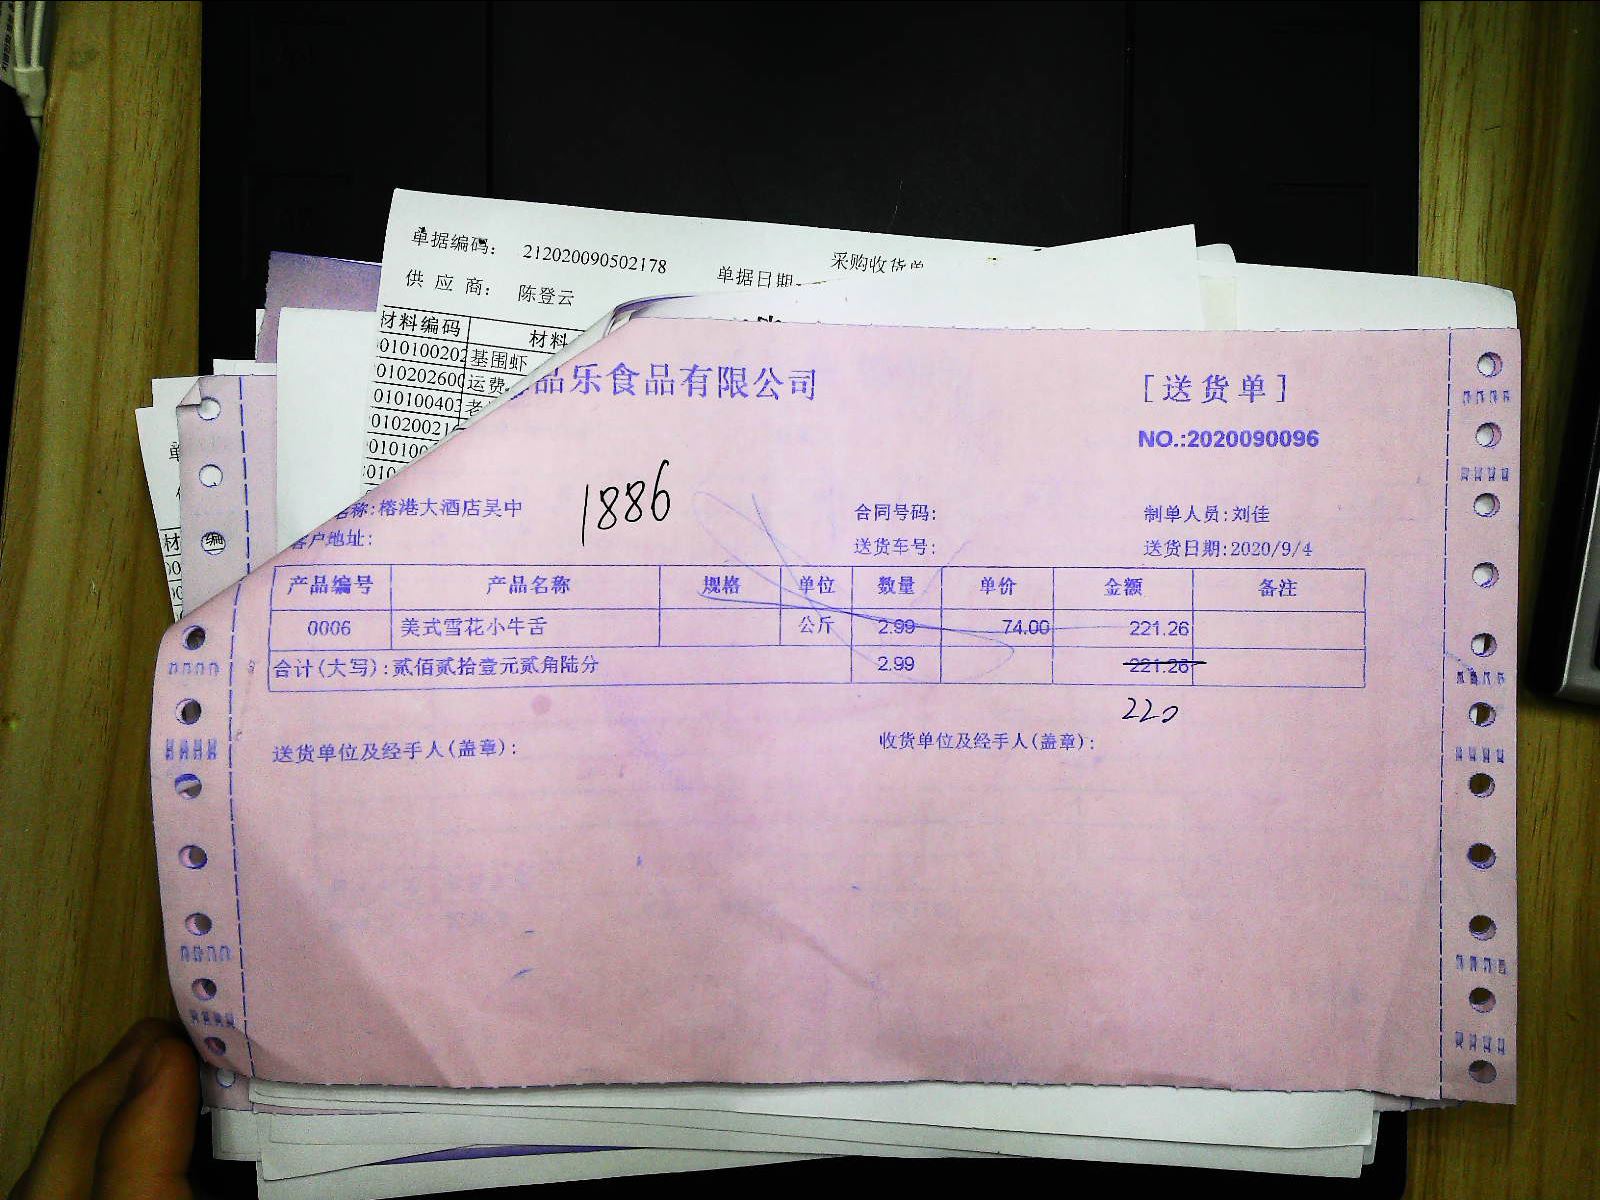 单据编码: 212020090502178
采购收货单
单据日期
供 应 商: 陈登云
材料编码 材料
010100202 基围虾
010202600 运费
010100403 老
01020021
010100
010
品乐食品有限公司
[ 送 货 单 ]
NO.:2020090096
1886
名称:榕港大酒店吴中
合同号码:
制单人员:刘佳
客户地址:
送货车号:
送货日期:2020/9/4
产品编号 产品名称 规格 单位 数量 单价 金额 备注
0006 美式雪花小牛舌 公斤 2.99 74.00 221.26
合计(大写):贰佰贰拾壹元贰角陆分 2.99 221.26
220
送货单位及经手人(盖章):
收货单位及经手人(盖章):
单
材
编